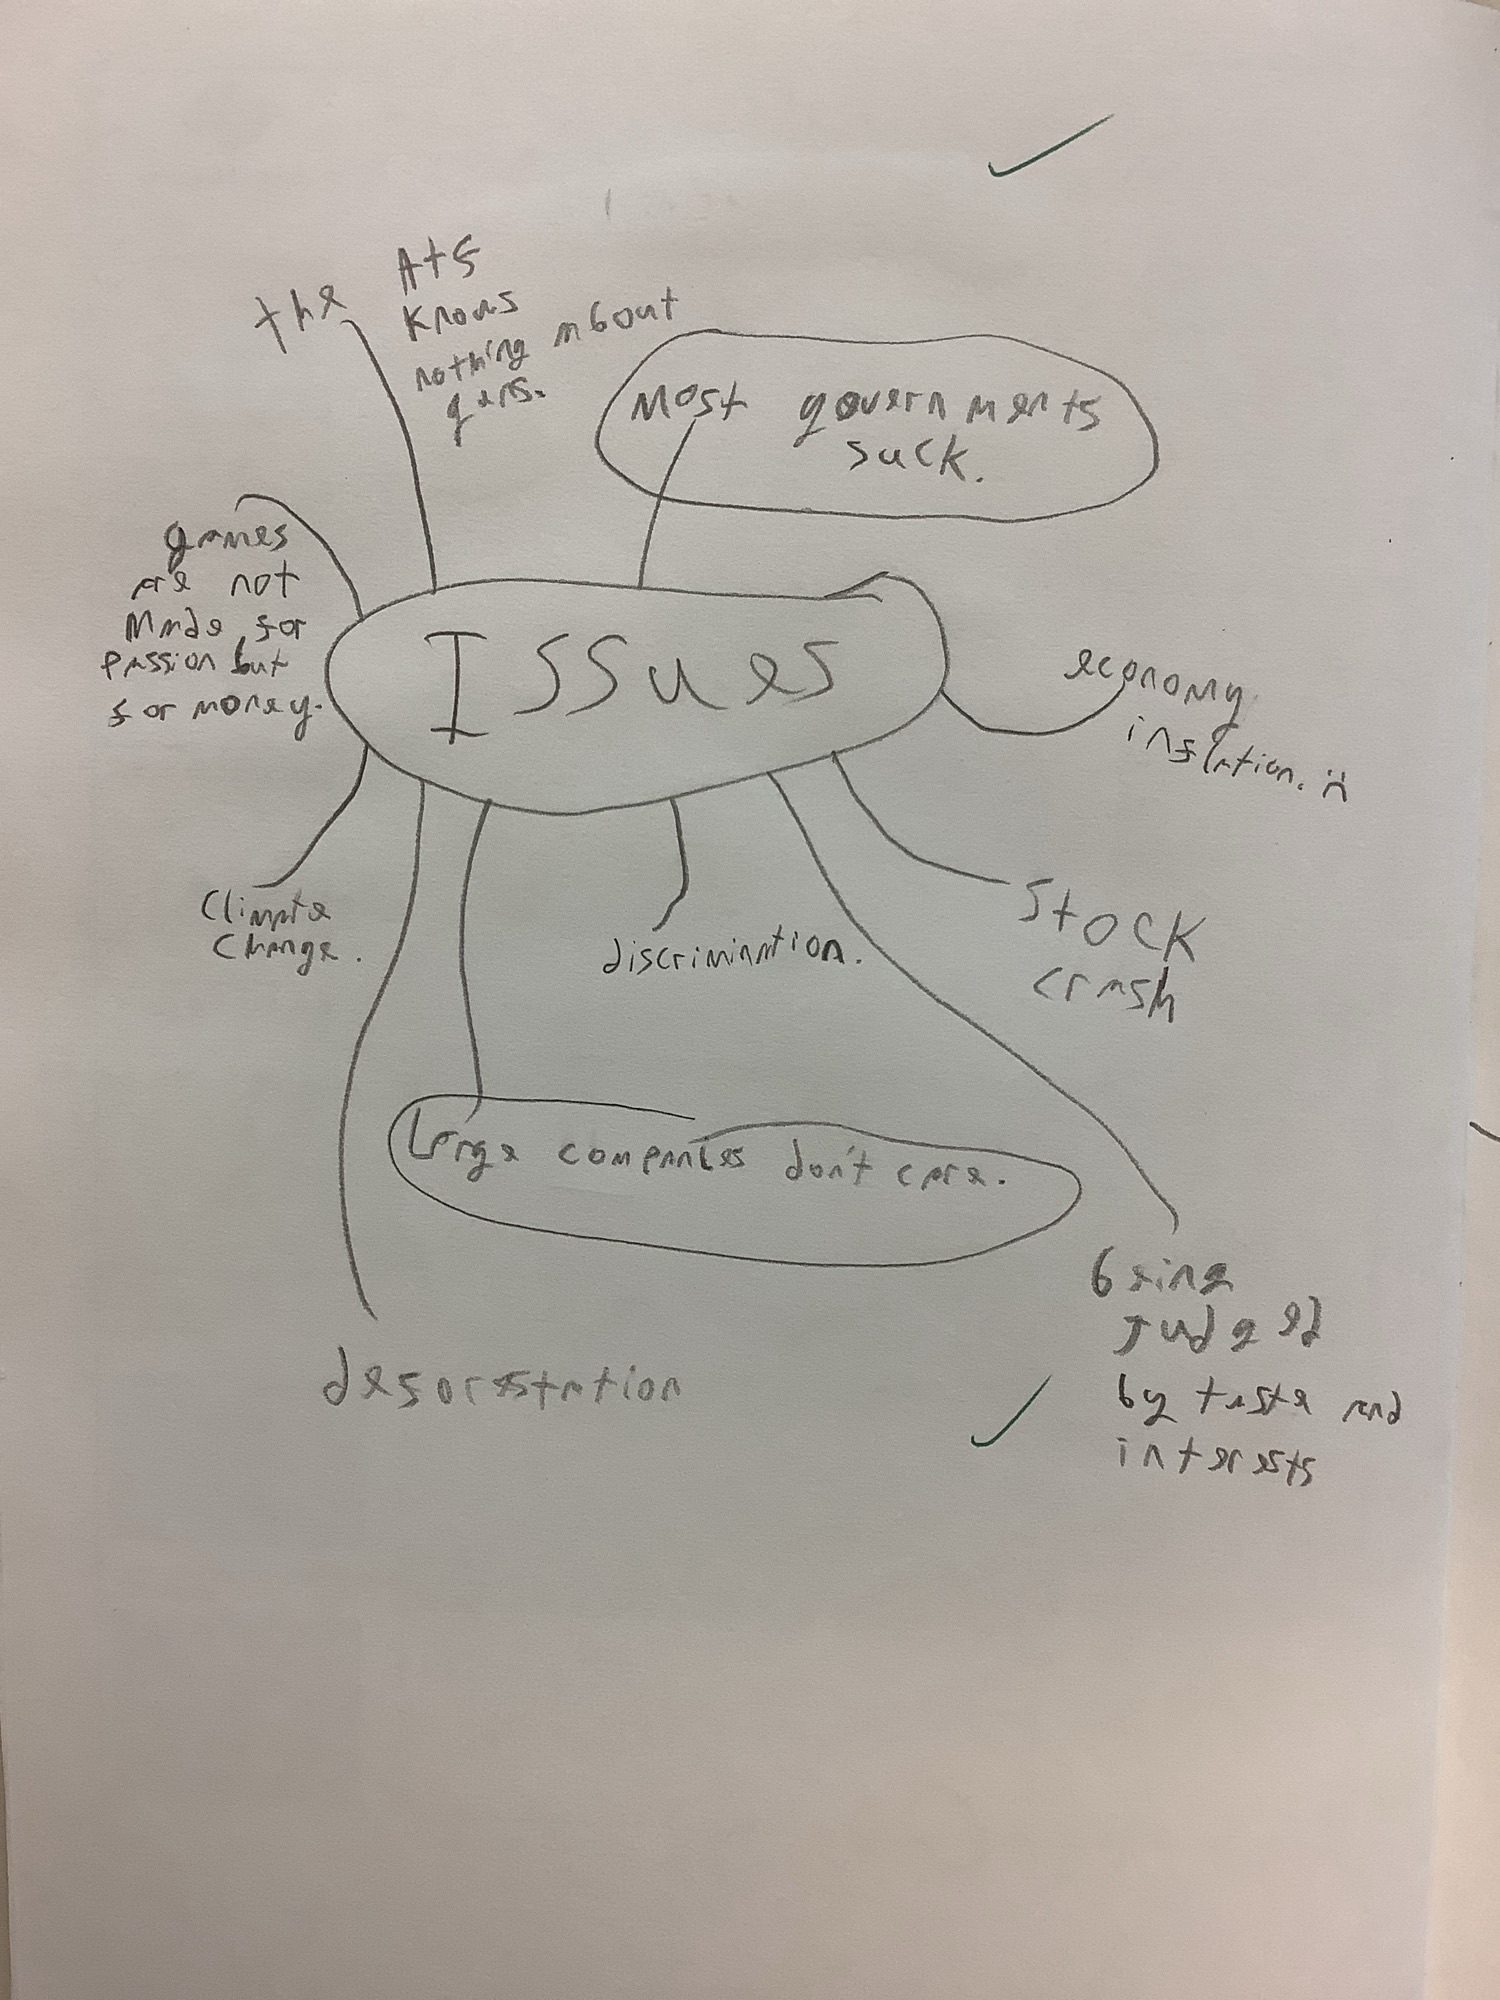 the
Atf
knows
nothing about
guns.
Most governments
suck.
games
are not
made for
passion but
for money.
Issues
economy
inflation. :(
Climate
change.
discrimination.
Stock
crash
Large companies don't care.
being
judged
by taste and
interests
deforestation